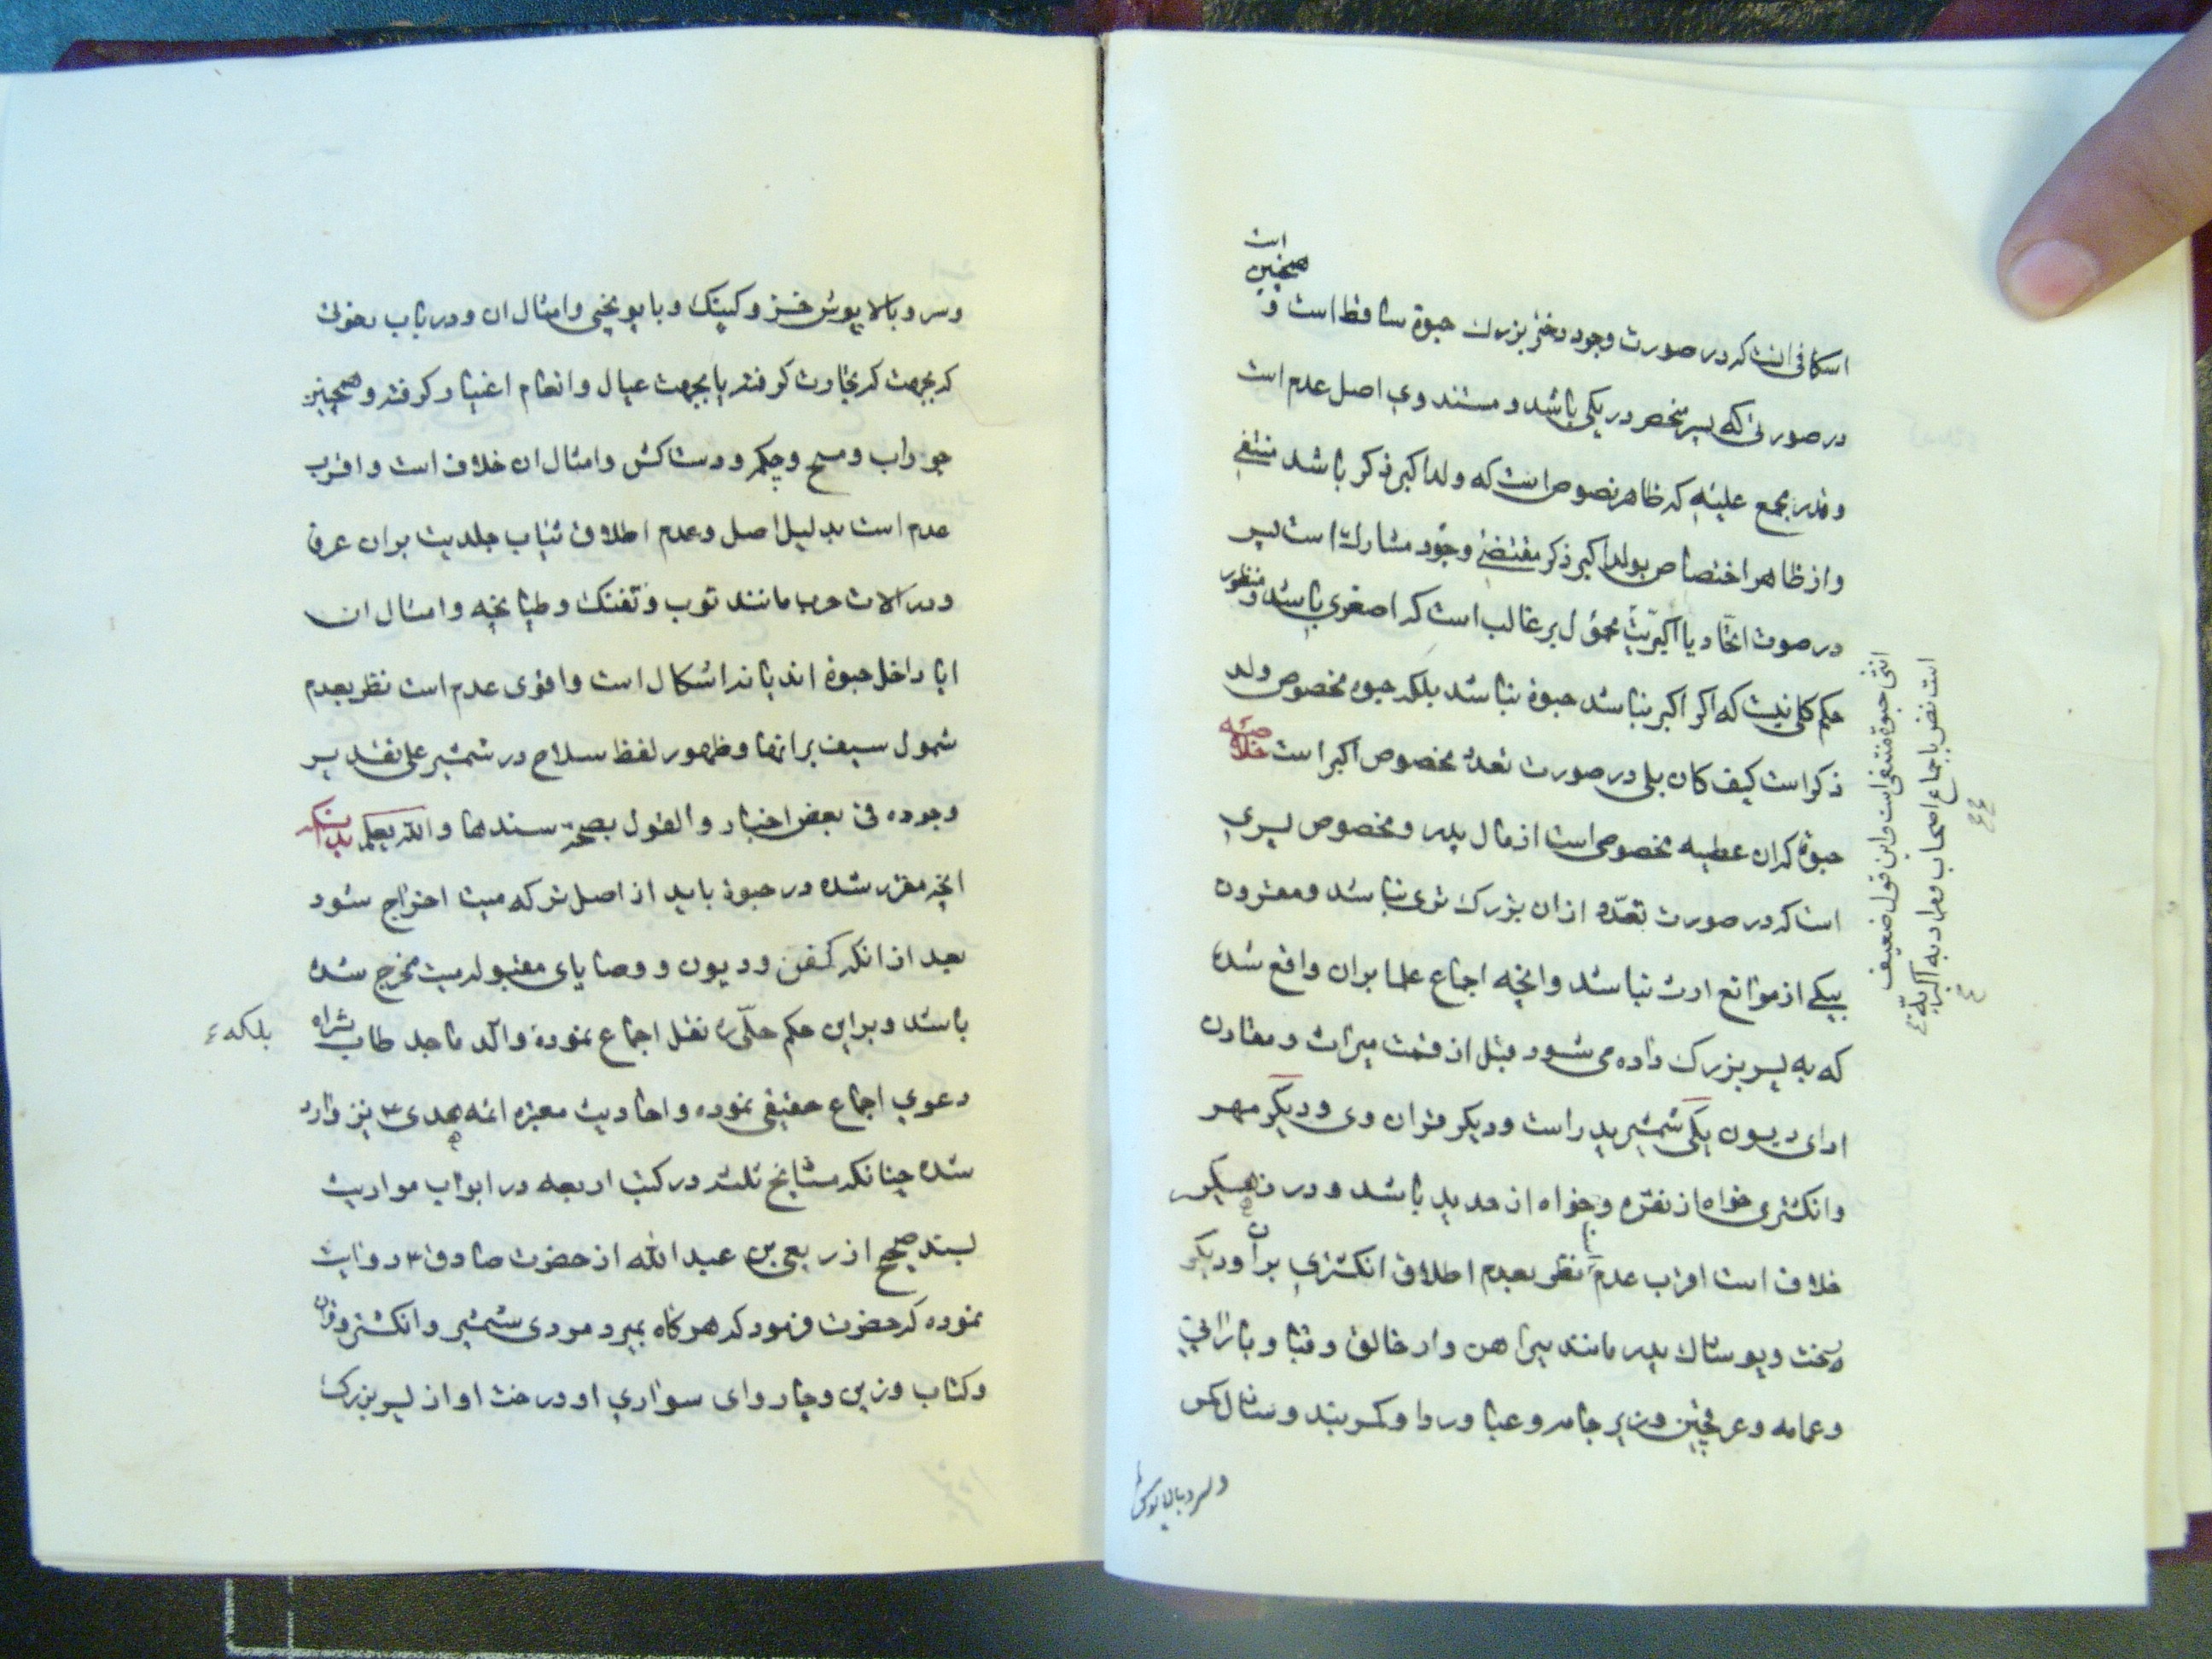 است
همچنین
اسکافی انست که در صورت وجود دختر بزرك حبوة ساقط است و
در صورتی که پسر منحصر در یکی باشد و مستند وی اصل عدم است
و قدر مجمع علیه که ظاهر نصوص است که ولد اکبر ذکر باشد منتفی
و از ظاهر اختصاص بولد اکبر ذکر مقتضی وجود مشارك است پس
در صوت اتحاد یا اکبریت محمول بر غالب است که اصغری باشد و منظور
حکم کلی نیست که اکر اکبر نباشد حبوة نباشد بلکه حبوه مخصوص ولد
ذکر است کیف کان بلی در صورت تعدد مخصوص اکبر است خلاصه
حبوة که ان عطیه مخصوصی است از مال پدر و مخصوص پسری
است که در صورت تعدد از ان بزرک تری نباشد و مقرون
بیکی از موانع ارث نباشد و انچه اجماع علما بران واقع شده
که به پسر بزرک داده می شود قبل از قسمت میراث و مقارن
ادای دیون یکی شمشیر پدر است و دیکر قران وی و دیکر مهر
و انکشتری خواه از نقره و خواه از حدید باشد و در زهیکر
خلاف است اقرب عدم نظر بعدم اطلاق انکشتری بران و دیکر
رخت و پوشاك پدر مانند پیراهن و ارخالق و قبا و بارانی
و عمامه و عرقچین و زیر جامه و عبا و ردا و کمربند و شال کمر
و سر و بالاپوش
انثی حبوة منتفی است و این قول ضعیف
است نظر باجماع اصحاب و مراد به اکبریة
و سر و بالاپوش خز و کپنک و پاپونچی و امثال ان و در باب رخوتی
که بجهت که تجارت کرفته یا بجهت عیال و انعام اغنیا و کرفته و همچنین
جوراب و مسح و چکمه و دستاکش و امثال ان خلاف است و اقرب
عدم است بدلیل اصل و عدم اطلاق ثیاب جلدیت بران عرفا
و در الات حرب مانند توپ و تفنك و طپانچه و امثال ان
ایا داخل حبوة اند یا نه اشکال است و اقوی عدم است نظر بعدم
شمول سیف بر انها و ظهور لفظ سلاح در شمشیر علی تقدیر
وجوده فی بعض اخبار و القول بصحة سندها و الله یعلم بدانکه
انچه مقرر شده در حبوة باید از اصل ترکه میت اخراج شود
بعد از انکه کفن و دیون و وصایای مقبوله میت مخرج شده
باشد و براین حکم حلّی ره نقل اجماع نموده و آلد ماجد طاب ثراه
بلکه
دعوی اجماع حقیقی نموده و احادیث معتبره ائمه هدی ع نیز وارد
شده چنانکه مشایخ ثلثه در کتب اربعه در ابواب مواریث
بسند صحیح از ربعی بن عبدالله از حضرت صادق ع روایت
نموده که حضرت فرمود که هر کاه بمیرد مردی شمشیر و انکشتر و قران
و کتاب و زین و چاروای سواری او و رخت او از پسر بزرک